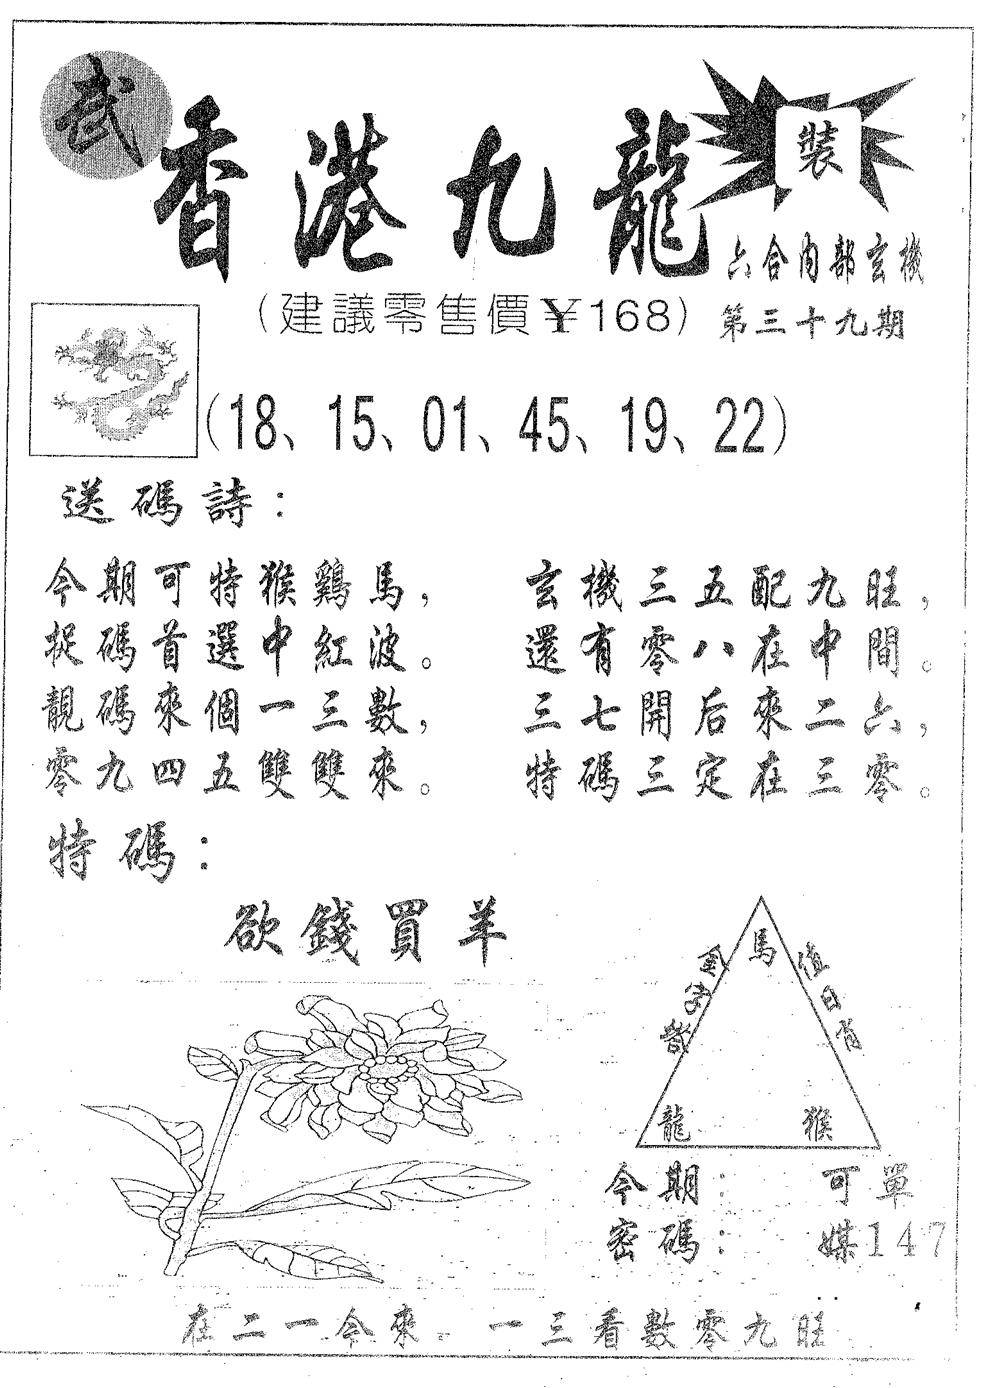 武
香港九龍
裝
六合內部玄機
(建議零售價¥168)
第三十九期
(18、15、01、45、19、22)
送碼詩：
今期可特猴鷄馬，
捉碼首選中紅波。
靚碼來個一三數，
零九四五雙雙來。
玄機三五配九旺，
還有零八在中間。
三七開后來二六，
特碼三定在三零。
特碼：
欲錢買羊
金字塔
值日肖
馬
龍
猴
今期：可單
密碼：媒147
在二一今來。一三看數零九旺